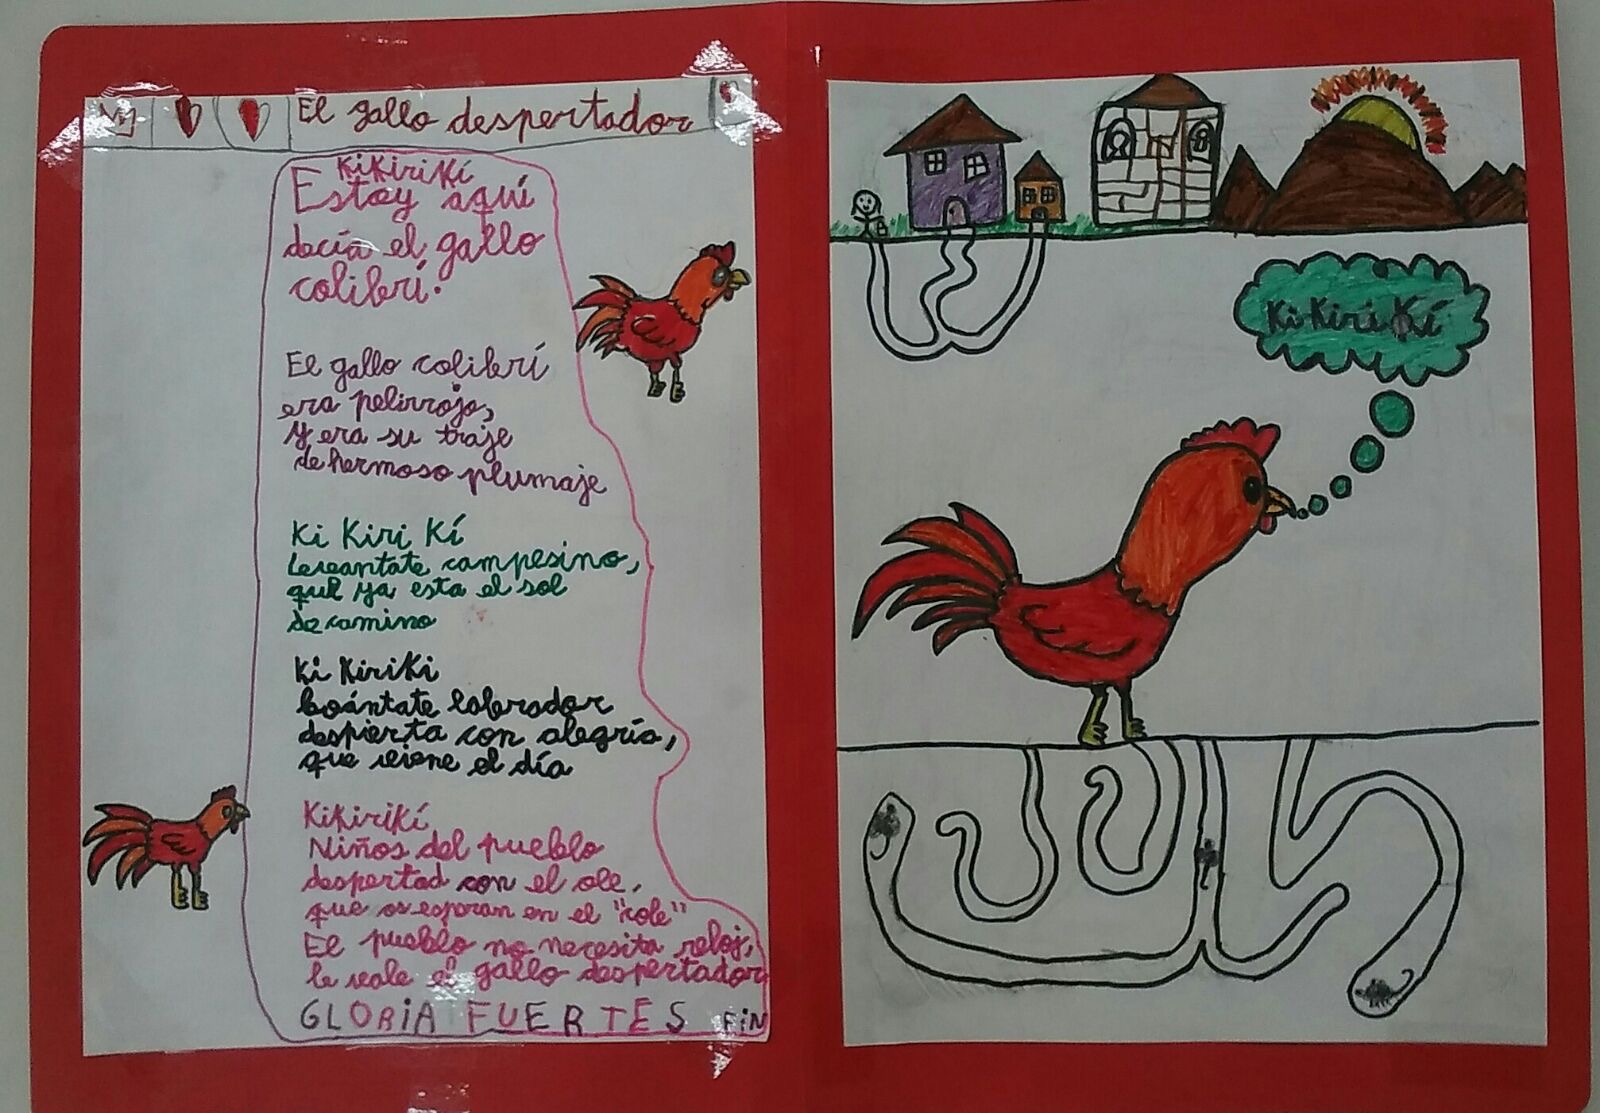 El gallo despertador
Kikirikí
Estoy aquí
decía el gallo
colibrí.
El gallo colibrí
era pelirrojo,
y era su traje
de hermoso plumaje
Ki Kiri Kí
Levantate campesino,
que ya esta el sol
de camino
Ki KiriKi
levántate labrador
despierta con alegría,
que viene el día
Kikirikí
Niños del pueblo
despertad con el ole,
que os esperan en el "cole"
El pueblo no necesita reloj,
le vale el gallo despertador
GLORiA FUERTES FiN
Ki Kiri Kí